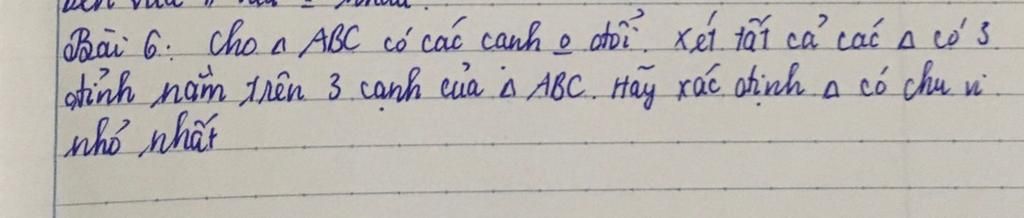 Bài 6: Cho Δ ABC có các cạnh o đổi. Xét tất cả các Δ có 3
đỉnh nằm trên 3 cạnh của Δ ABC. Hãy xác định Δ có chu vi
nhỏ nhất